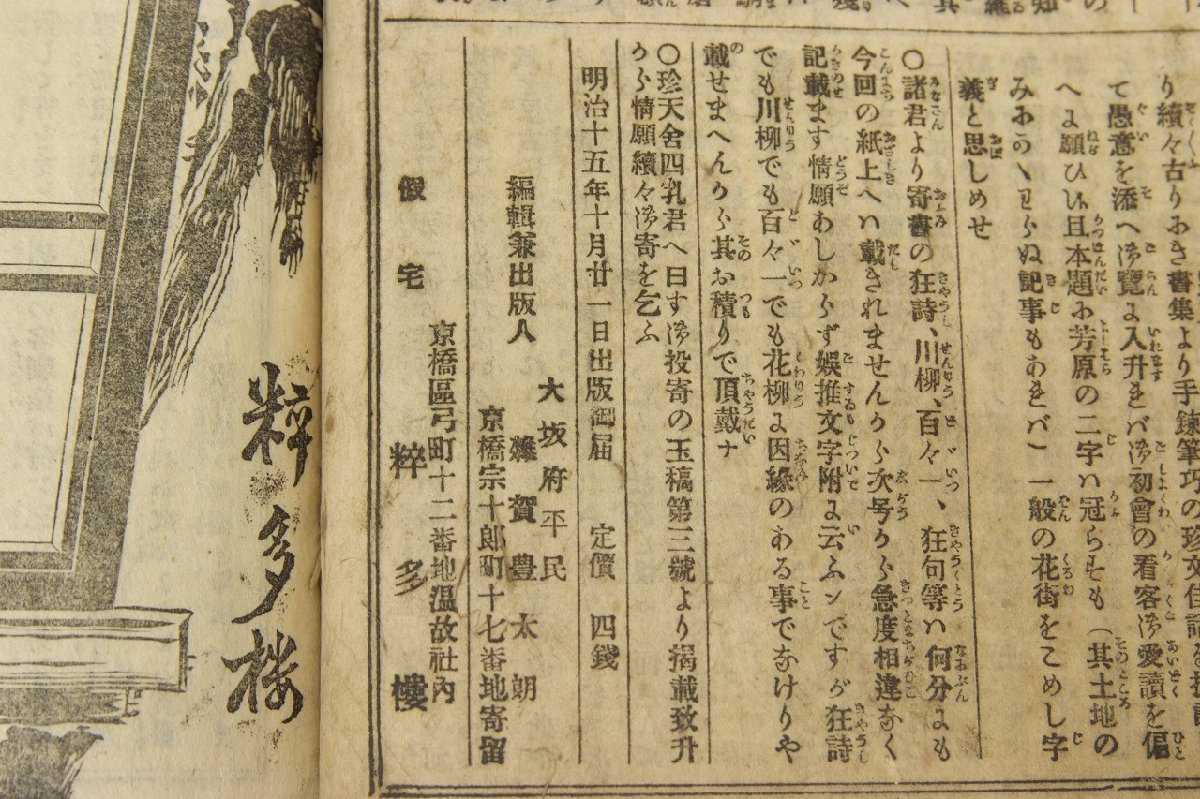 り續々古りおき書集より手録筆巧の珍文佳話を掲記
て愚意を添へ御覽よ入升れバ御初會の看客御愛讀を偏
へよ願ひ升且本題お芳原の二字ハ冠らすも(其土地の
みおのミならぬ記事もあれバ)一般の花街をこめし字
義と思しめせ
○諸君より寄書の狂詩、川柳、百々一、狂句等ハ何分よも
今回の紙上へハ載きれませんから次号から急度相違なく
記載ます情願あしからず娯推文字附よ云ふンですが狂詩
でも川柳でも百々一でも花柳よ因縁のある事でなけりや
載せまへんから其お積りで頂戴ナ
○珍天舍四乳君へ曰す御投寄の玉稿第三號より掲載致升
から情願續々御寄を乞ふ
明治十五年十月廿一日出版御届 定價 四錢
大坂府平民
編輯兼出版人 雜賀豊太朗
京橋宗十郎町十七番地寄留
京橋區弓町十二番地温故社内
假宅 粹多樓
粹多楼